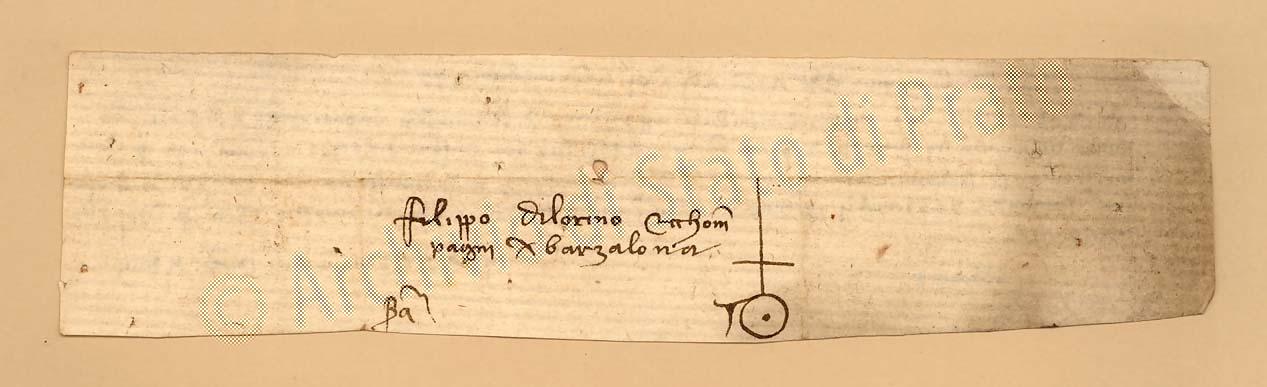 Filippo di lorino e chom
pagni in barzalona
© Archivio di Stato di Prato